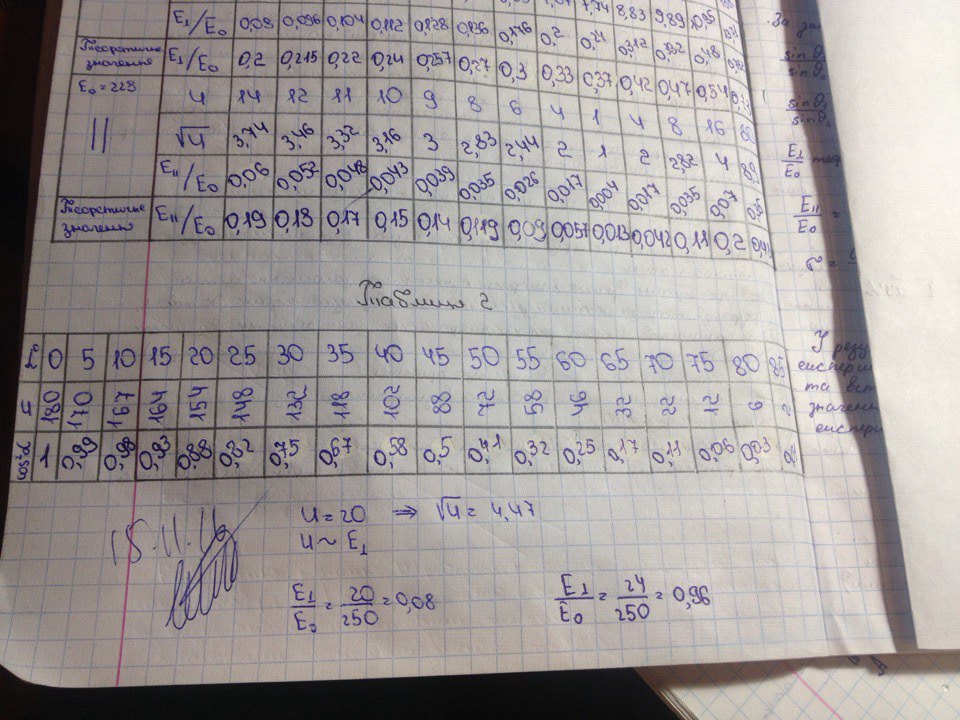 7,74 8,83 9,89 10,95
E⊥/E₀ 0,09 0,096 0,104 0,112 0,128 0,136 0,176 0,2 0,21 0,312 0,392 0,48
Теоретичне значення E⊥/E₀ 0,2 0,215 0,22 0,24 0,257 0,27 0,3 0,33 0,37 0,42 0,47 0,54
E₀ = 228
|| U 14 12 11 10 9 8 6 4 1 4 8 16
√U 3,74 3,46 3,32 3,16 3 2,83 2,44 2 1 2 2,82 4 8,9
E||/E₀ 0,06 0,052 0,048 0,043 0,039 0,035 0,026 0,017 0,004 0,017 0,035 0,07
Теоретичне значення E||/E₀ 0,19 0,18 0,17 0,15 0,14 0,119 0,09 0,057 0,013 0,042 0,11 0,2
Таблиця 2
L° 0 5 10 15 20 25 30 35 40 45 50 55 60 65 70 75 80 85
U 180 170 167 164 154 148 132 118 102 88 72 58 46 32 22 12 6
cos²α 1 0,99 0,98 0,93 0,88 0,82 0,75 0,67 0,58 0,5 0,41 0,32 0,25 0,17 0,11 0,06 0,03
15.11.16
U = 20 ⇒ √U = 4,47
U ~ E⊥
E⊥/E₀ = 20/250 = 0,08
E⊥/E₀ = 24/250 = 0,96
За
E⊥/E₀
E||/E₀ =
У резу
експери
та вст
значенн
експери